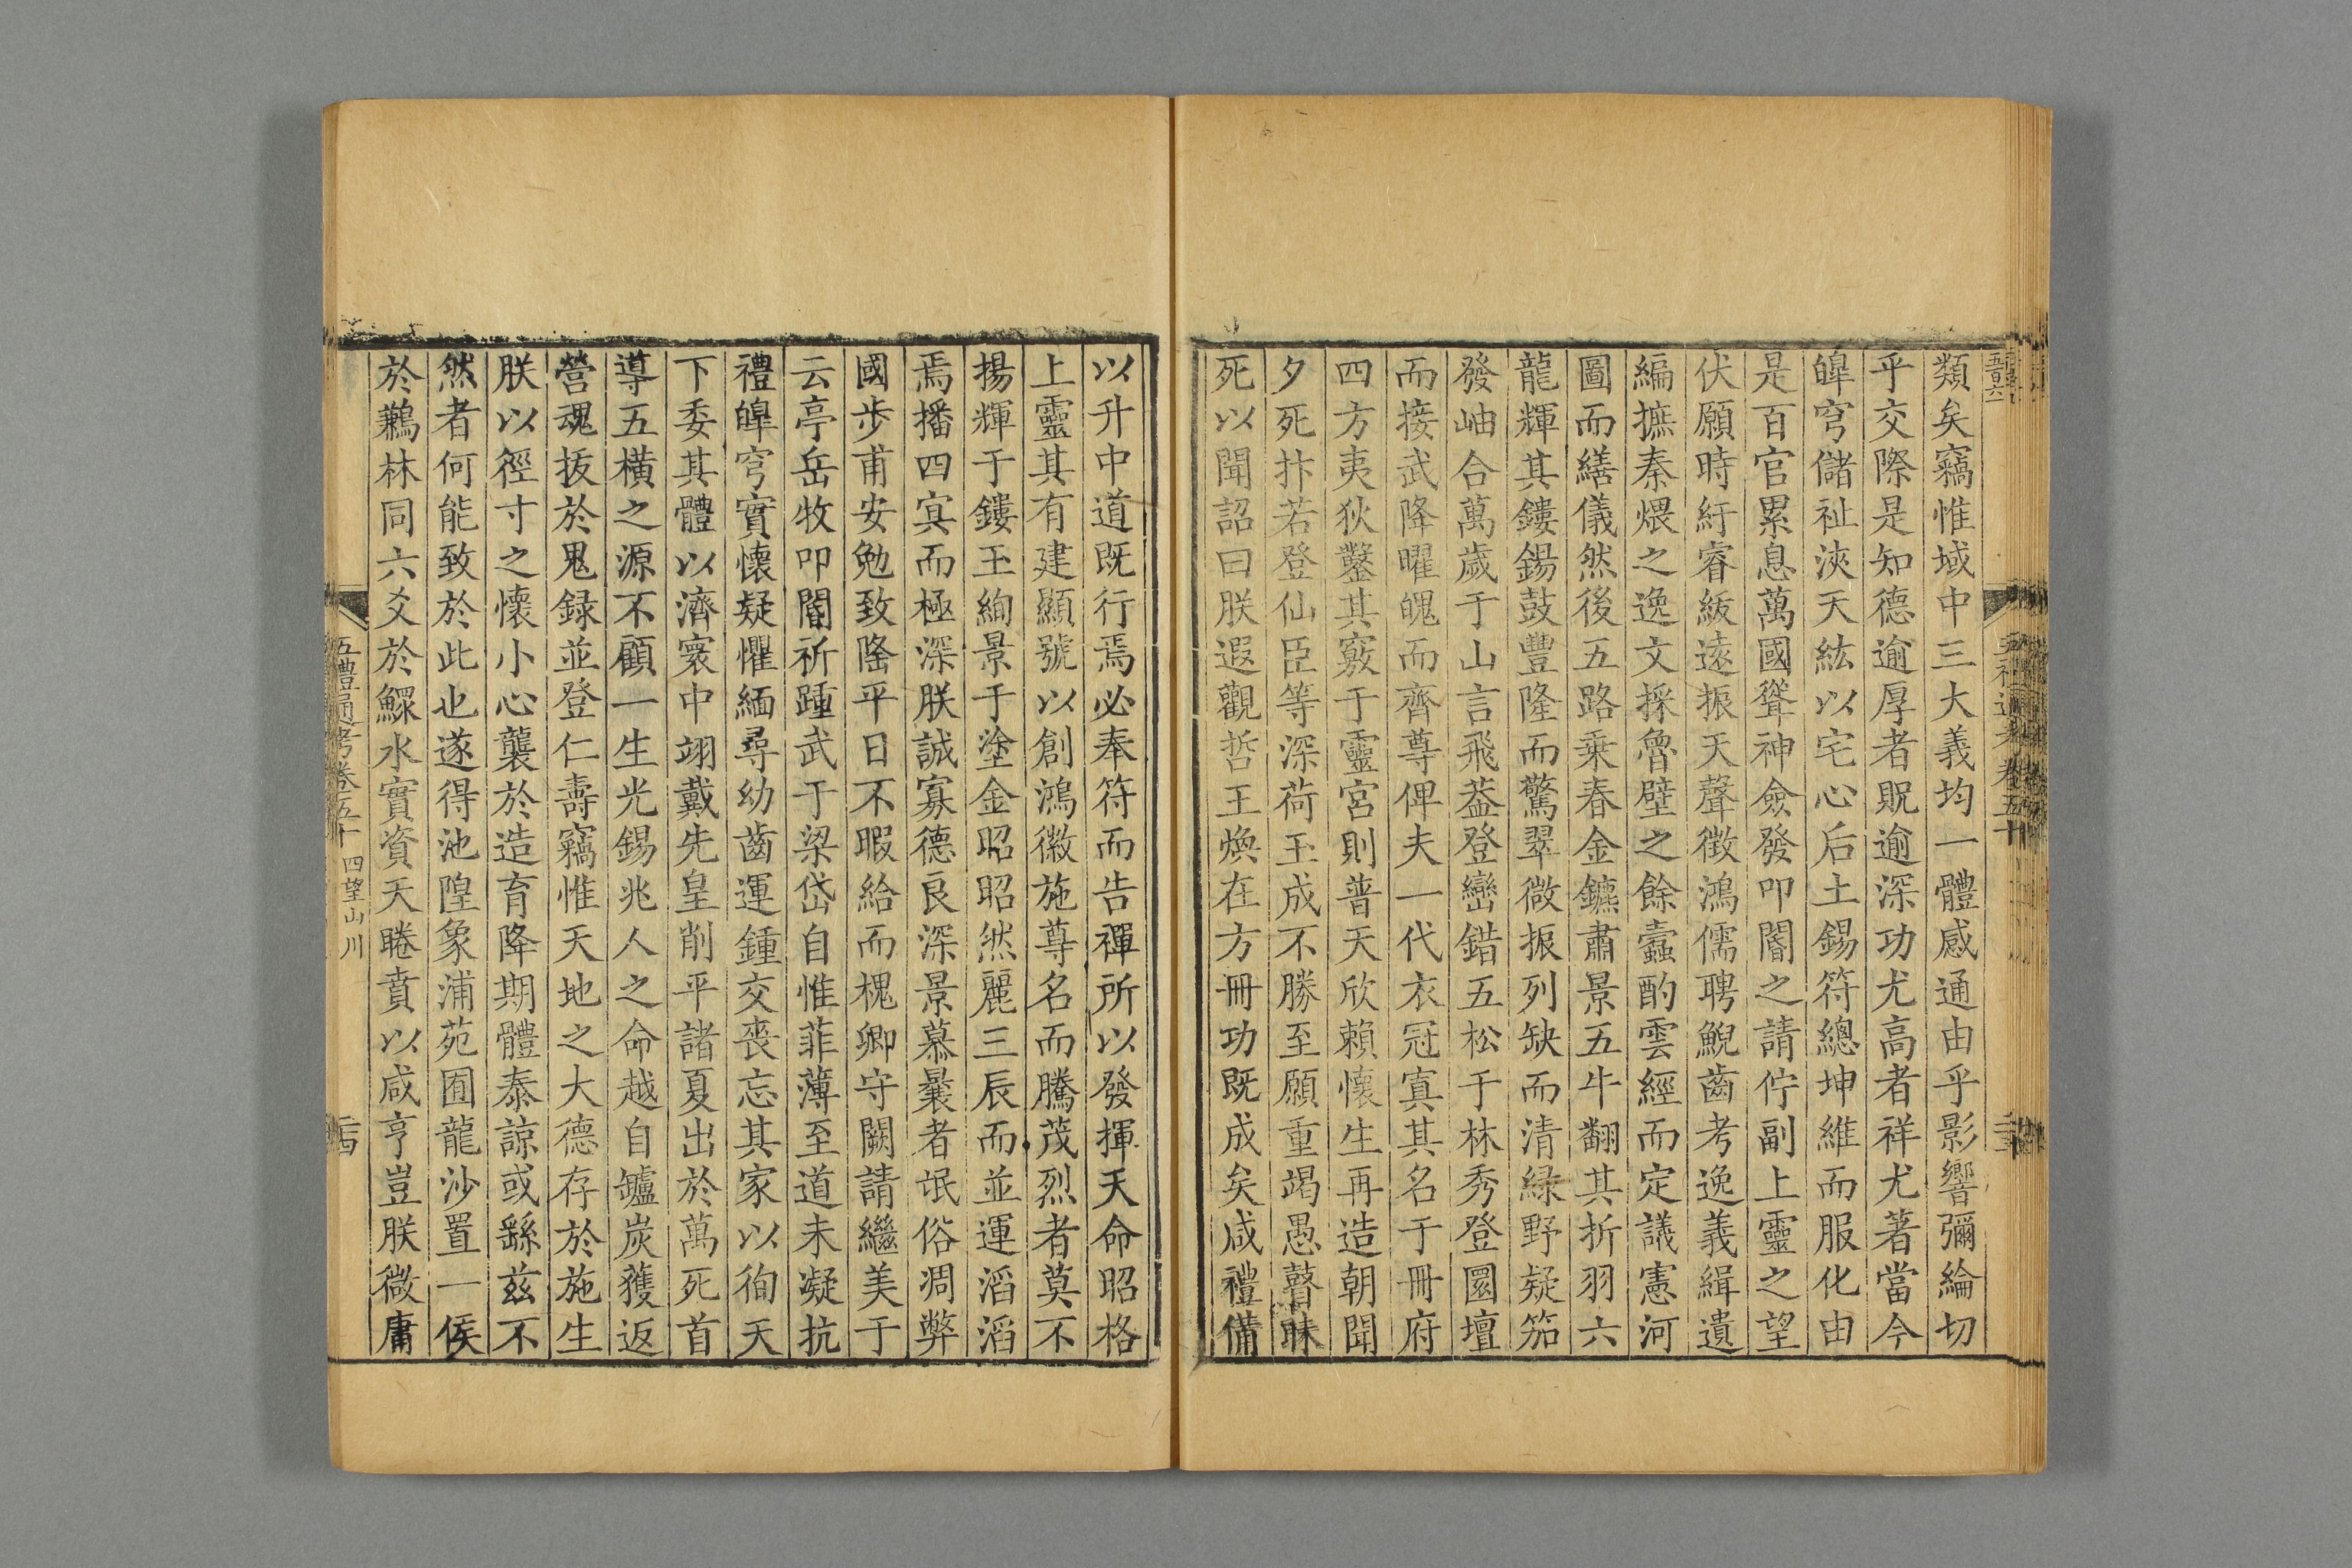 類矣竊惟域中三大義均一體感通由乎影響彌綸切
乎交際是知德逾厚者貺逾深功尤高者祥尤著當今
皞穹儲祉浹天紘以宅心后土錫符總坤維而服化由
是百官累息萬國聳神僉發叩閽之請佇副上靈之望
伏願時紆睿綍遠振天聲徴鴻儒聘鯢齒考逸義緝遺
編摭秦煨之逸文採魯壁之餘蠹酌雲經而定議憲河
圖而繕儀然後五路乘春金鑣肅景五牛翻其折羽六
龍輝其鏤鍚鼓豐隆而驚翠微振列缺而清緑野疑笳
發岫合萬歲于山言飛葢登巒錯五松于林秀登圜壇
而接武降曜魄而齊尊俾夫一代衣冠寘其名于冊府
四方夷狄鑿其竅于靈宮則普天欣賴懷生再造朝聞
夕死抃若登仙臣等深荷玉成不勝至願重竭愚瞽昧
死以聞詔曰朕遐觀哲王煥在方冊功既成矣咸禮備
以升中道既行焉必奉符而告禪所以發揮天命昭格
上靈其有建顯號以創鴻徽施尊名而騰茂烈者莫不
揚輝于鏤玉絢景于塗金昭昭然麗三辰而並運滔滔
焉播四寅而極深朕誠寡德良深景慕曩者氓俗凋弊
國步甫安勉致隆平日不暇給而槐卿守闕請繼美于
云亭岳牧叩閽祈踵武于梁岱自惟菲薄至道未凝抗
禮皞穹實懷疑懼緬尋幼齒運鍾交喪忘其家以徇天
下委其體以濟寰中翊戴先皇削平諸夏出於萬死首
導五横之源不顧一生光錫兆人之命越自鑪炭獲返
營魂拔於鬼録並登仁壽竊惟天地之大德存於施生
朕以徑寸之懷小心襲於造育降期體泰諒或繇兹不
然者何能致於此也遂得池隍象浦苑囿龍沙置一侯
於鶼林同六爻於鰥水實資天睠賁以咸亨豈朕微庸
五禮通考卷五十 四望山川
二十四